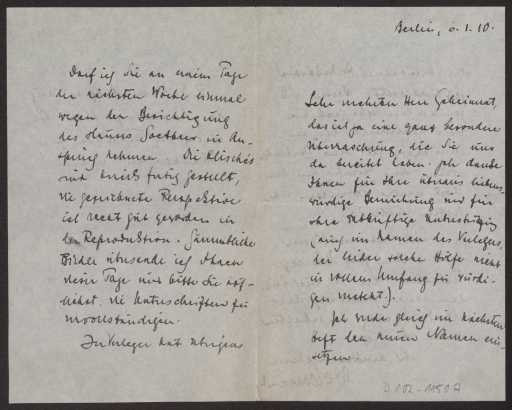 Berlin, 6.1.10.
Sehr verehrter Herr Geheimrat,
das ist ja eine ganz besondere
Überraschung, die Sie uns
da bereitet haben. Ich danke
Ihnen für Ihre überaus liebens-
würdige Bemühung und für
Ihre tatkräftige Unterstützung
(auch im Namen des Verlegers,
der leider solche Hilfe nicht
in vollem Umfang zu würdi-
gen versteht).
Ich werde gleich im nächsten
Heft den neuen Namen ein-
setzen
Darf ich Sie an einem Tage
der nächsten Woche einmal
wegen der Besichtigung
des Hauses in An-
spruch nehmen. Die Klischés
sind bereits fertig gestellt,
die gezeichnete Perspektive
ist recht gut geworden in
der Reproduktion. Sämmtliche
Bilder übersende ich Ihnen
dieser Tage und bitte Sie höf-
lichst, die Unterschriften zu
vervollständigen.
Der Verleger hat übrigens
D 102-1150 A